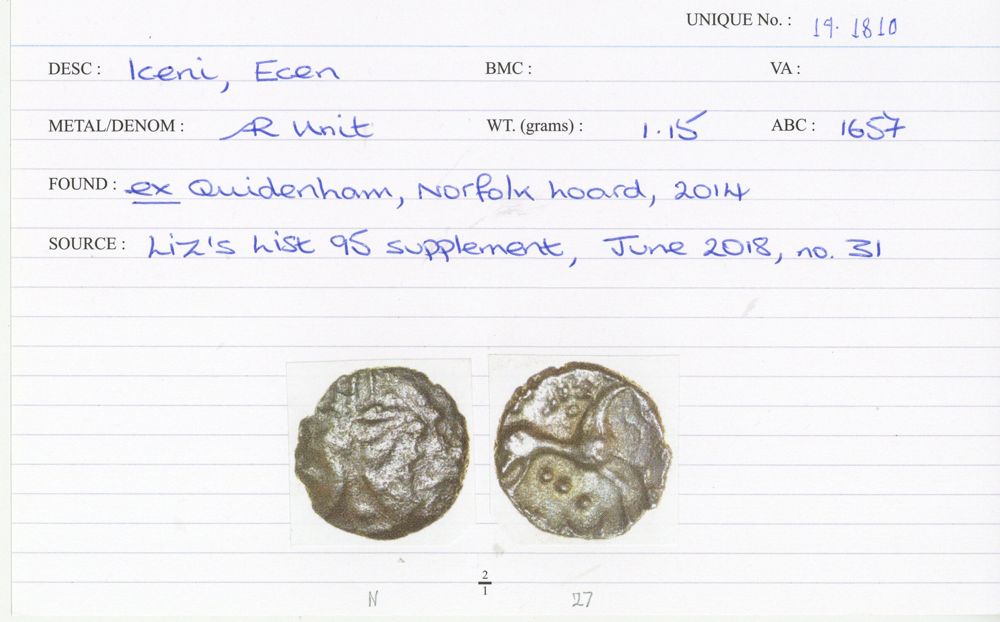 UNIQUE No. : 19. 1810
DESC : Iceni, Ecen BMC : VA :
METAL/DENOM : AR Unit WT. (grams) : 1.15 ABC : 1657
FOUND : ex Quidenham, Norfolk hoard, 2014
SOURCE : Liz's List 95 supplement, June 2018, no. 31
2
1
N 27